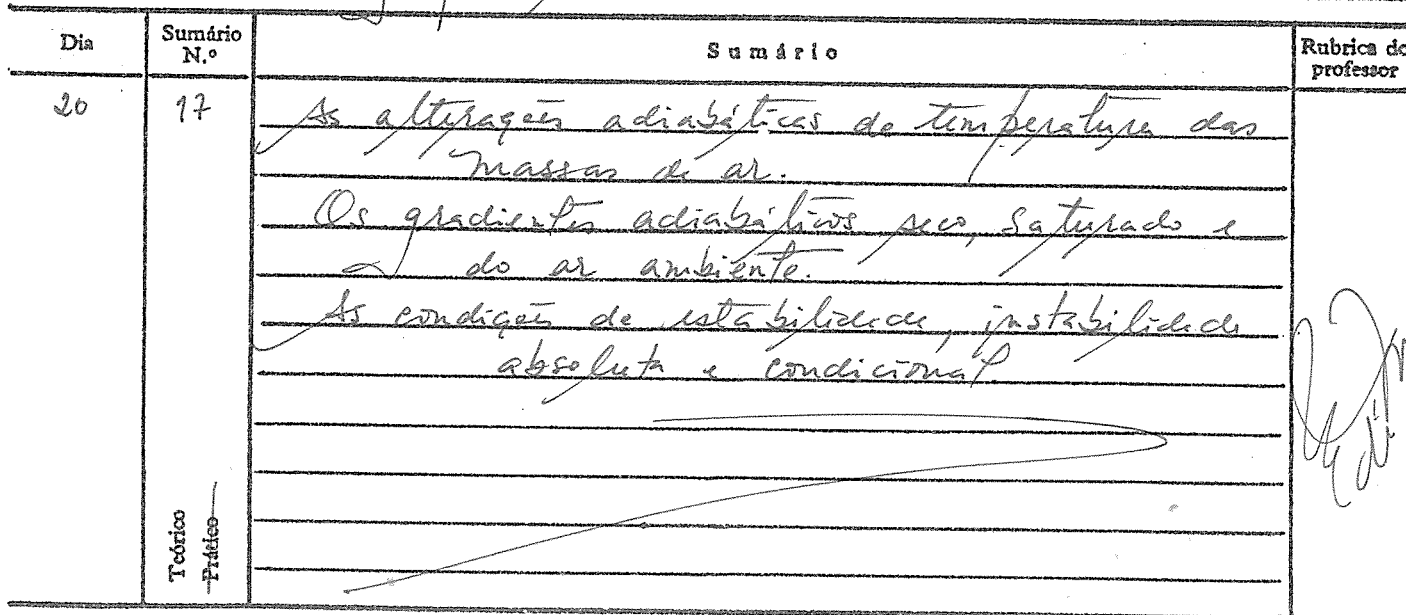 Dia
Sumário N.º
Sumário
Rubrica do professor
20
17
As alterações adiabáticas de temperatura das
massas de ar.
Os gradientes adiabáticos seco, saturado e
do ar ambiente.
As condições de estabilidade, instabilidade
absoluta e condicional.
Teórico
Prático